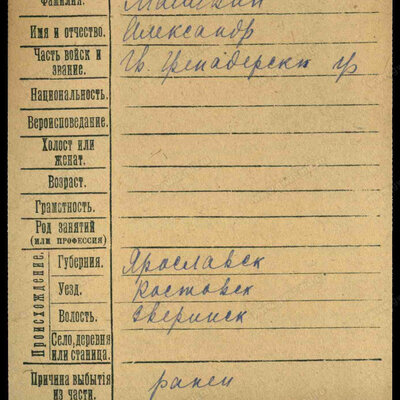 Фамилия.
Имя и отчество. Александр
Часть войск и звание. Гв. Гренадерск гр
Национальность.
Вероисповедание.
Холост или женат.
Возраст.
Грамотность.
Род занятий (или профессия)
Происхождение.
Губерния. Ярославск
Уезд. Ростовск
Волость.
Село, деревня или станица.
Причина выбытия из части. ранен